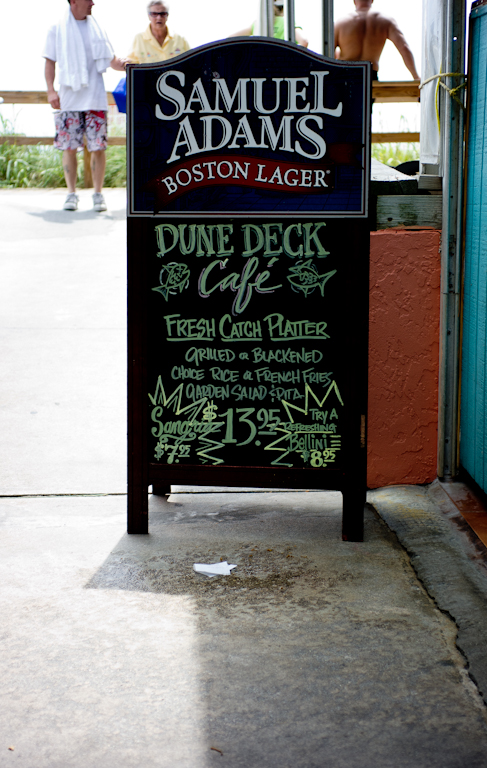 SAMUEL
ADAMS
BOSTON LAGER
DUNE DECK
Café
FRESH CATCH PLATTER
GRILLED OR BLACKENED
CHOICE RICE OR FRENCH FRIES
GARDEN SALAD & PITA
$13.95
Sangria
$7.95
TRY A
REFRESHING
Bellini
$8.95